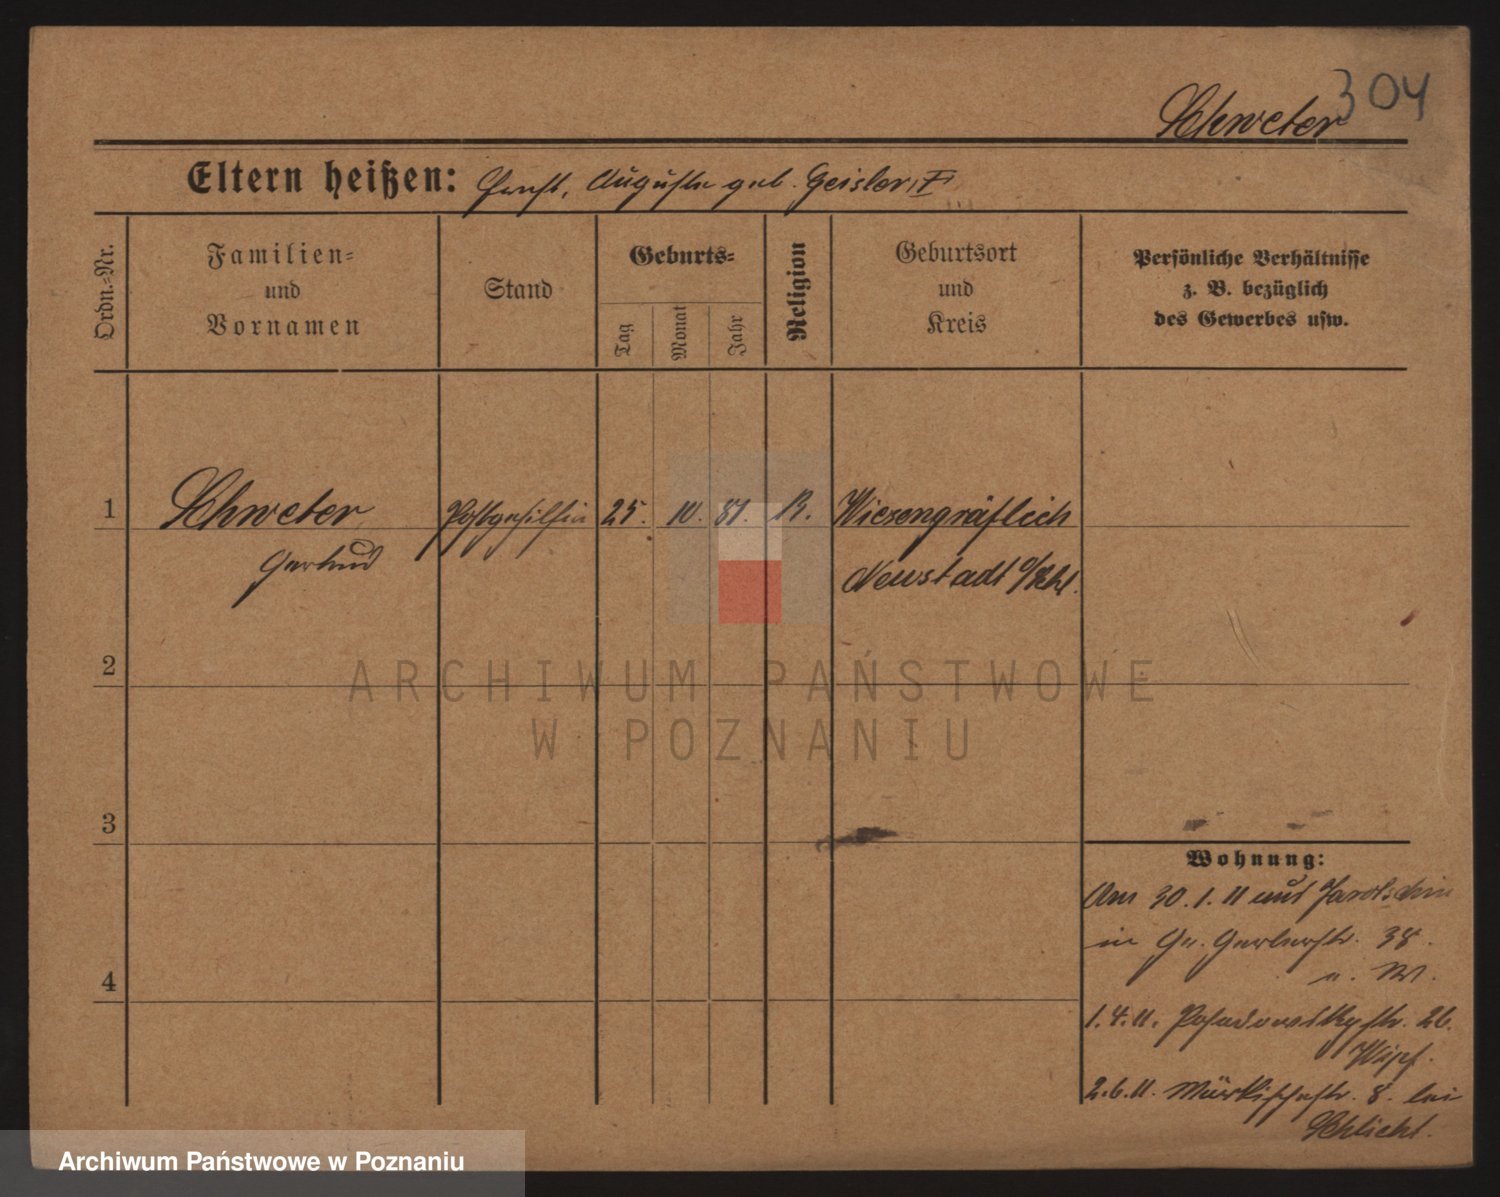 304
Schweter
Eltern heißen: Ernst, Auguste geb. Geisler,
Ordn.-Nr.
Familien- und Vornamen
Stand
Geburts-
Tag
Monat
Jahr
Religion
Geburtsort und Kreis
Persönliche Verhältnisse
z. B. bezüglich
des Gewerbes usw.
1 Schweter Postgehilfin 25. 10. 81. K. Wiesengräflich
Gertrud Neustadt
2
3
4
Wohnung:
Am 30.1.11 aus Jarotschin
in Gr. Gerberstr. 38.
1.4.11. Posadowskystr. 26.
2.6.11. Märkischestr. 8. bei
Schlicht.
ARCHIWUM PAŃSTWOWE
W POZNANIU
Archiwum Państwowe w Poznaniu